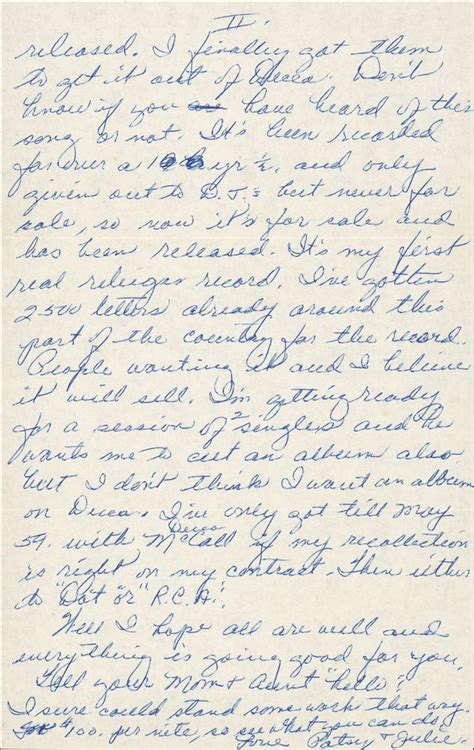 II.
released. I finally got them
to get it out of Decca. Don't
know if you have heard of this
song or not. It's been recorded
for over a 1 yr ½, and only
given out to D.J.s but never for
sale, so now it's for sale and
has been released. It's my first
real religes record. I've gotten
2500 letters already around this
part of the country for the record.
People wanting it and I beleive
it will sell. I'm getting ready
for a session of 2 singles and he
wants me to cut an album also
but I don't think I want an album
on Decca. I've only got till May
59. with Decca McCall if my recollection
is right on my contract. Then either
to "Dot" or "R.C.A."
Well I hope all are well and
everything is going good for you.
Tell your Mom & Aunt "hello".
I sure could stand some work that way.
$100. per nite, so see what you can do.
Love Patsy & Julie